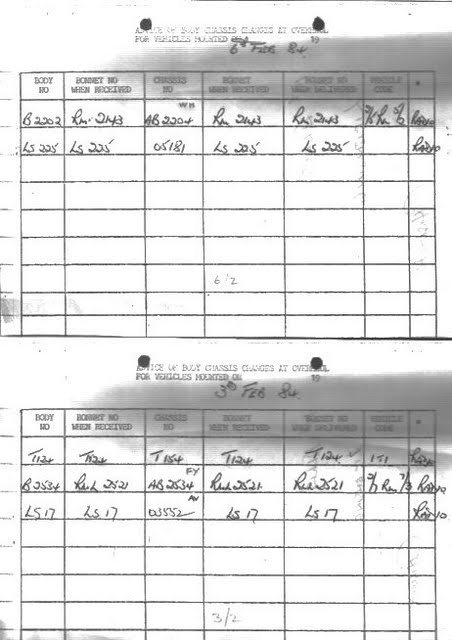 ADVICE OF BODY CHASSIS CHANGES AT OVERHAUL
FOR VEHICLES MOUNTED ON 19
6th FEB 84
BODY NO BONNET NO WHEN RECEIVED CHASSIS NO BONNET BONNET NO WHEN DELIVERED VEHICLE CODE
WH
B2202 Rm. 2143 AB2204 Rm 2143 Rm. 2143
LS 225 LS 225 05181 LS 225 LS 225
6/2
ADVICE OF BODY CHASSIS CHANGES AT OVERHAUL
FOR VEHICLES MOUNTED ON 19
3rd FEB 84
BODY NO BONNET NO WHEN RECEIVED CHASSIS NO BONNET BONNET NO WHEN DELIVERED VEHICLE CODE
T124 T124 T154 T124 T124 1T1
FY
B2534 RML 2521 AB2534 RML 2521 RML 2521
AV
LS 17 LS 17 03552 LS 17 LS 17
3/2